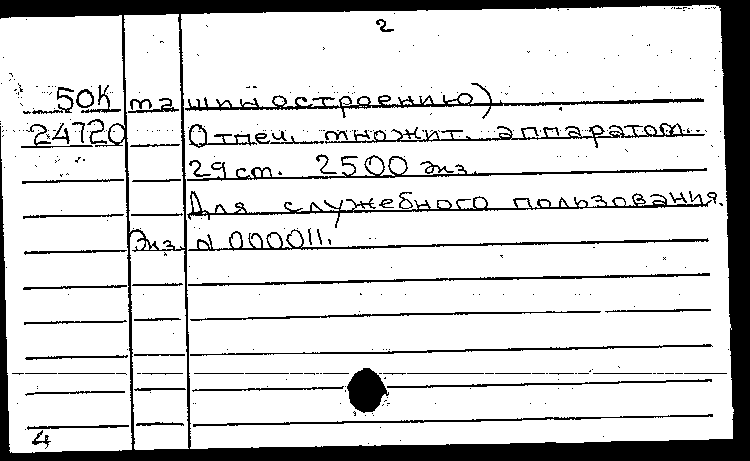 2
50К машиностроению).
24720 Отпеч. множит. аппаратом.
29 ст. 2500 экз.
Для служебного пользования.
Экз. N 000011.
4